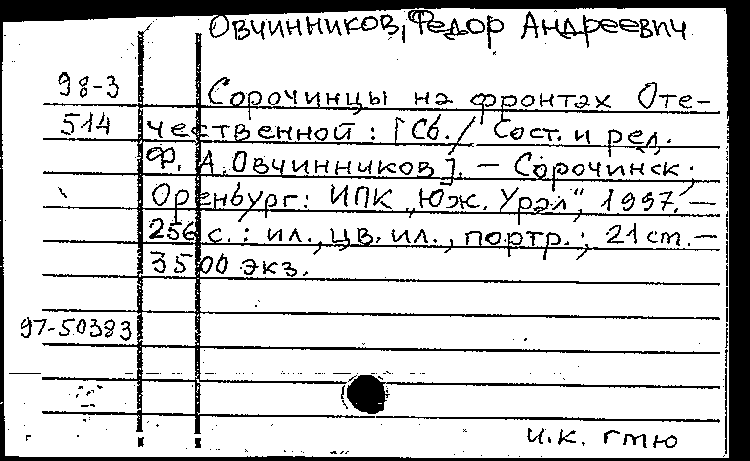 Овчинников, Федор Андреевич
98-3 Сорочинцы на фронтах Оте-
514 чественной: [Сб./ Сост. и ред.
Ф. А. Овчинников]. – Сорочинск;
Оренбург: ИПК „Юж. Урал", 1997. –
256 с.: ил., цв. ил., портр.; 21 cm. –
3500 экз.
97-50383
и.к. гмю